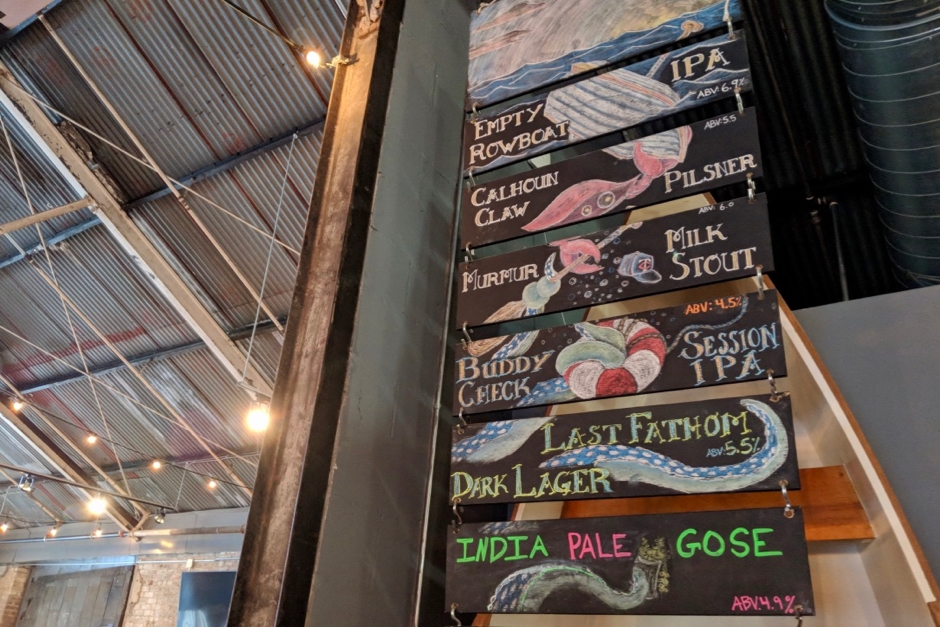 EMPTY ROWBOAT
IPA
ABV: 6.9%
CALHOUN CLAW
PILSNER
ABV: 5.5
MURMUR
MILK STOUT
ABV: 6.0
BUDDY CHECK
SESSION IPA
ABV: 4.5%
LAST FATHOM
DARK LAGER
ABV: 5.5%
INDIA PALE GOSE
ABV: 4.9%